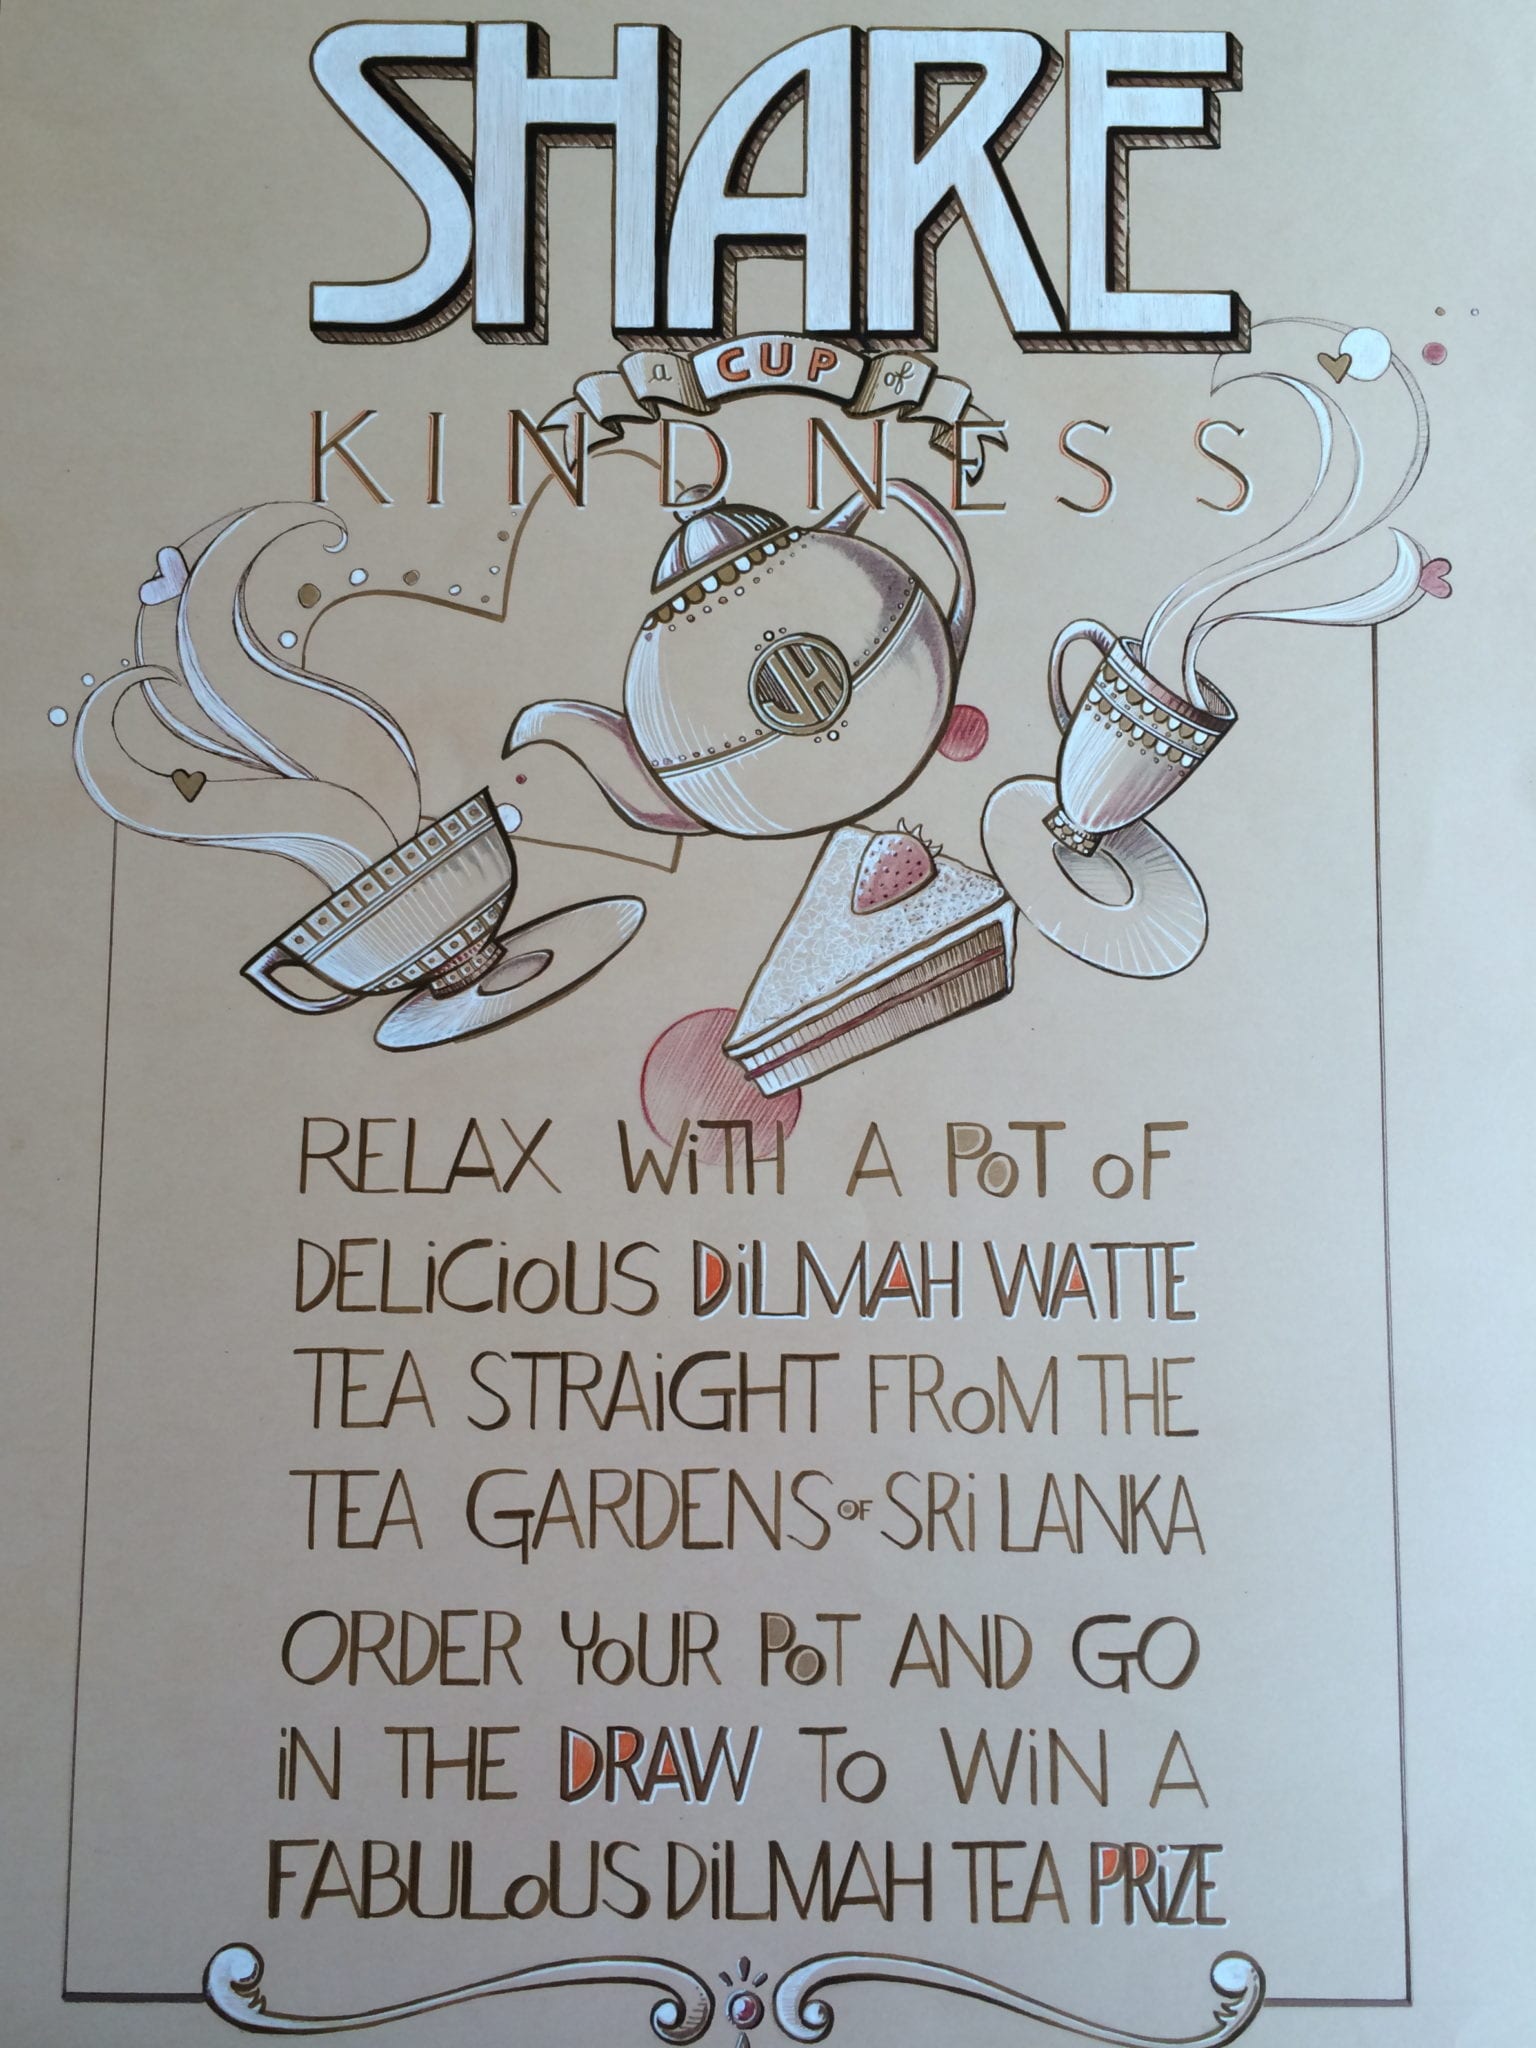 SHARE
a CUP of
KINDNESS
JH
RELAX WiTH A POT OF
DELiCiOUS DiLMAH WATTE
TEA STRAiGHT FROM THE
TEA GARDENS OF SRi LANKA
ORDER YOUR POT AND GO
iN THE DRAW TO WiN A
FABULOUS DiLMAH TEA PRiZE